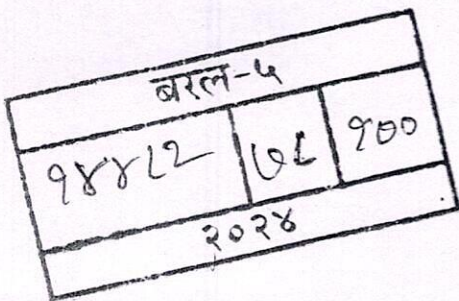 बरल-५
१४४८२ ७८ १००
२०२४